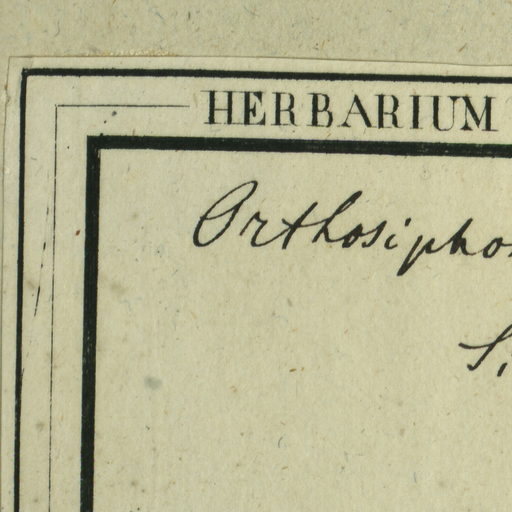 HERBARIUM
Orthosiphon